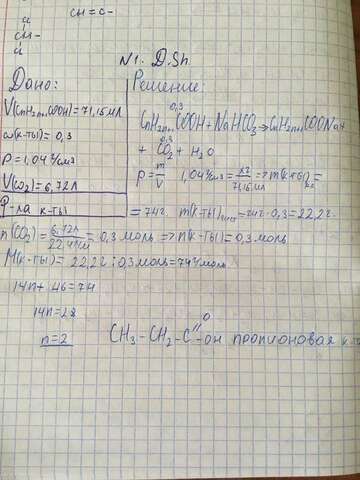 CH = C -
Cl
CH -
Cl
N1. D.Sh
Дано:
V(CnH2n+1COOH) = 71,15мл
ω(к-ты) = 0,3
ρ = 1,04г/см3
V(CO2) = 6,72л
Ф-ла к-ты
Решение:
0,3
CnH2n+1COOH + NaHCO3 → CnH2n+1COONa +
0,3
+ CO2 + H2O
ρ = m/V 1,04г/см3 = xг/71,15мл => m(к-ты) =
= 74г. m(к-ты)чист = 74г · 0,3 = 22,2г.
n(CO2) = 6,72л/22,4л/м = 0,3 моль => n(к-ты) = 0,3моль
M(к-ты) = 22,2г : 0,3моль = 74г/моль
14n + 46 = 74
14n = 28
n = 2
O
CH3 - CH2 - C - OH пропионовая